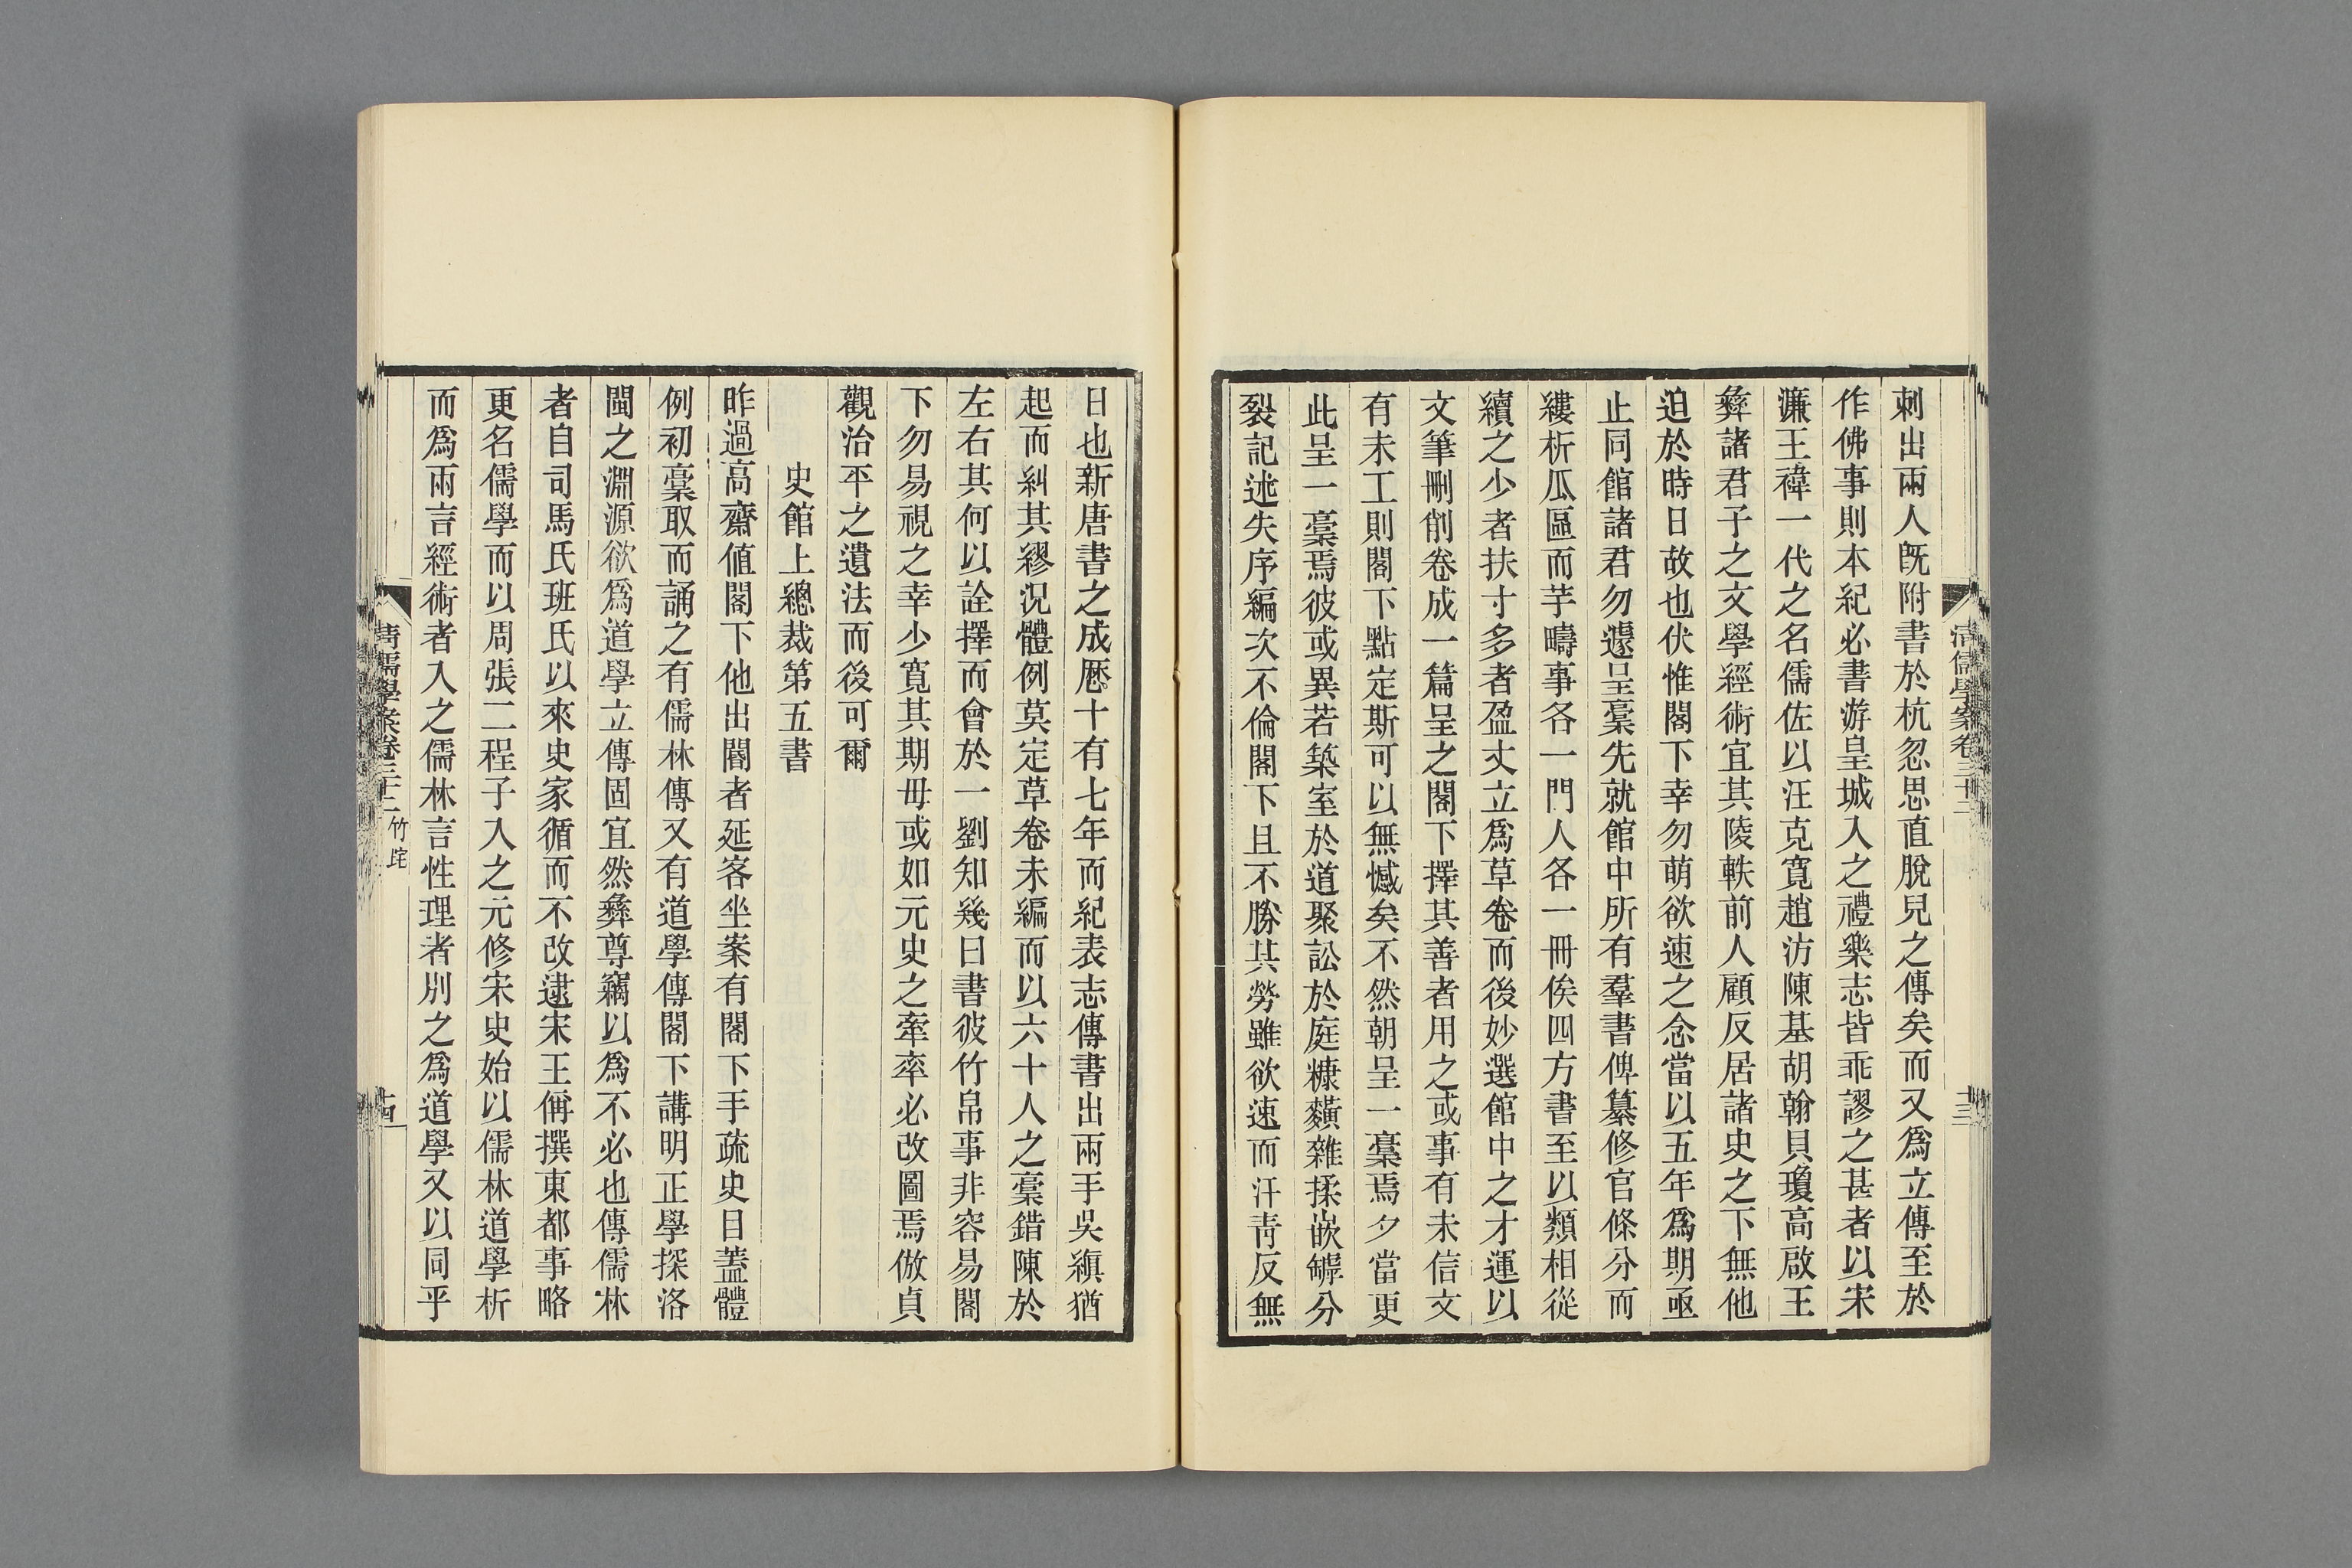 刺出兩人旣附書於杭忽思直脫兒之傳矣而又爲立傳至於
作佛事則本紀必書游皇城入之禮樂志皆乖謬之甚者以宋
濂王禕一代之名儒佐以汪克寬趙汸陳基胡翰貝瓊高啟王
彝諸君子之文學經術宜其陵軼前人顧反居諸史之下無他
迫於時日故也伏惟閣下幸勿萌欲速之念當以五年爲期亟
止同館諸君勿遽呈槀先就館中所有羣書俾纂修官條分而
縷析瓜區而芋疇事各一門人各一冊俟四方書至以類相從
續之少者扶寸多者盈丈立爲草卷而後妙選館中之才運以
文筆刪削卷成一篇呈之閣下擇其善者用之或事有未信文
有未工則閣下點定斯可以無憾矣不然朝呈一槀焉夕當更
此呈一槀焉彼或異若築室於道聚訟於庭糠䵃雜揉嵌罅分
裂記述失序編次不倫閣下且不勝其勞雖欲速而汗靑反無
清儒學案卷三十二
十三
日也新唐書之成歷十有七年而紀表志傳書出兩手吳縝猶
起而糾其繆况體例莫定草卷未編而以六十人之槀錯陳於
左右其何以詮擇而會於一劉知幾曰書彼竹帛事非容易閣
下勿易視之幸少寬其期毋或如元史之牽率必改圖焉倣貞
觀治平之遺法而後可爾
史館上總裁第五書
昨過高齋値閣下他出閽者延客坐案有閣下手疏史目蓋體
例初槀取而誦之有儒林傳又有道學傳閣下講明正學探洛
閩之淵源欲爲道學立傳固宜然彝尊竊以爲不必也傳儒林
者自司馬氏班氏以來史家循而不改逮宋王偁撰東都事略
更名儒學而以周張二程子入之元修宋史始以儒林道學析
而爲兩言經術者入之儒林言性理者別之爲道學又以同乎
清儒學案卷三十二 竹垞
十四